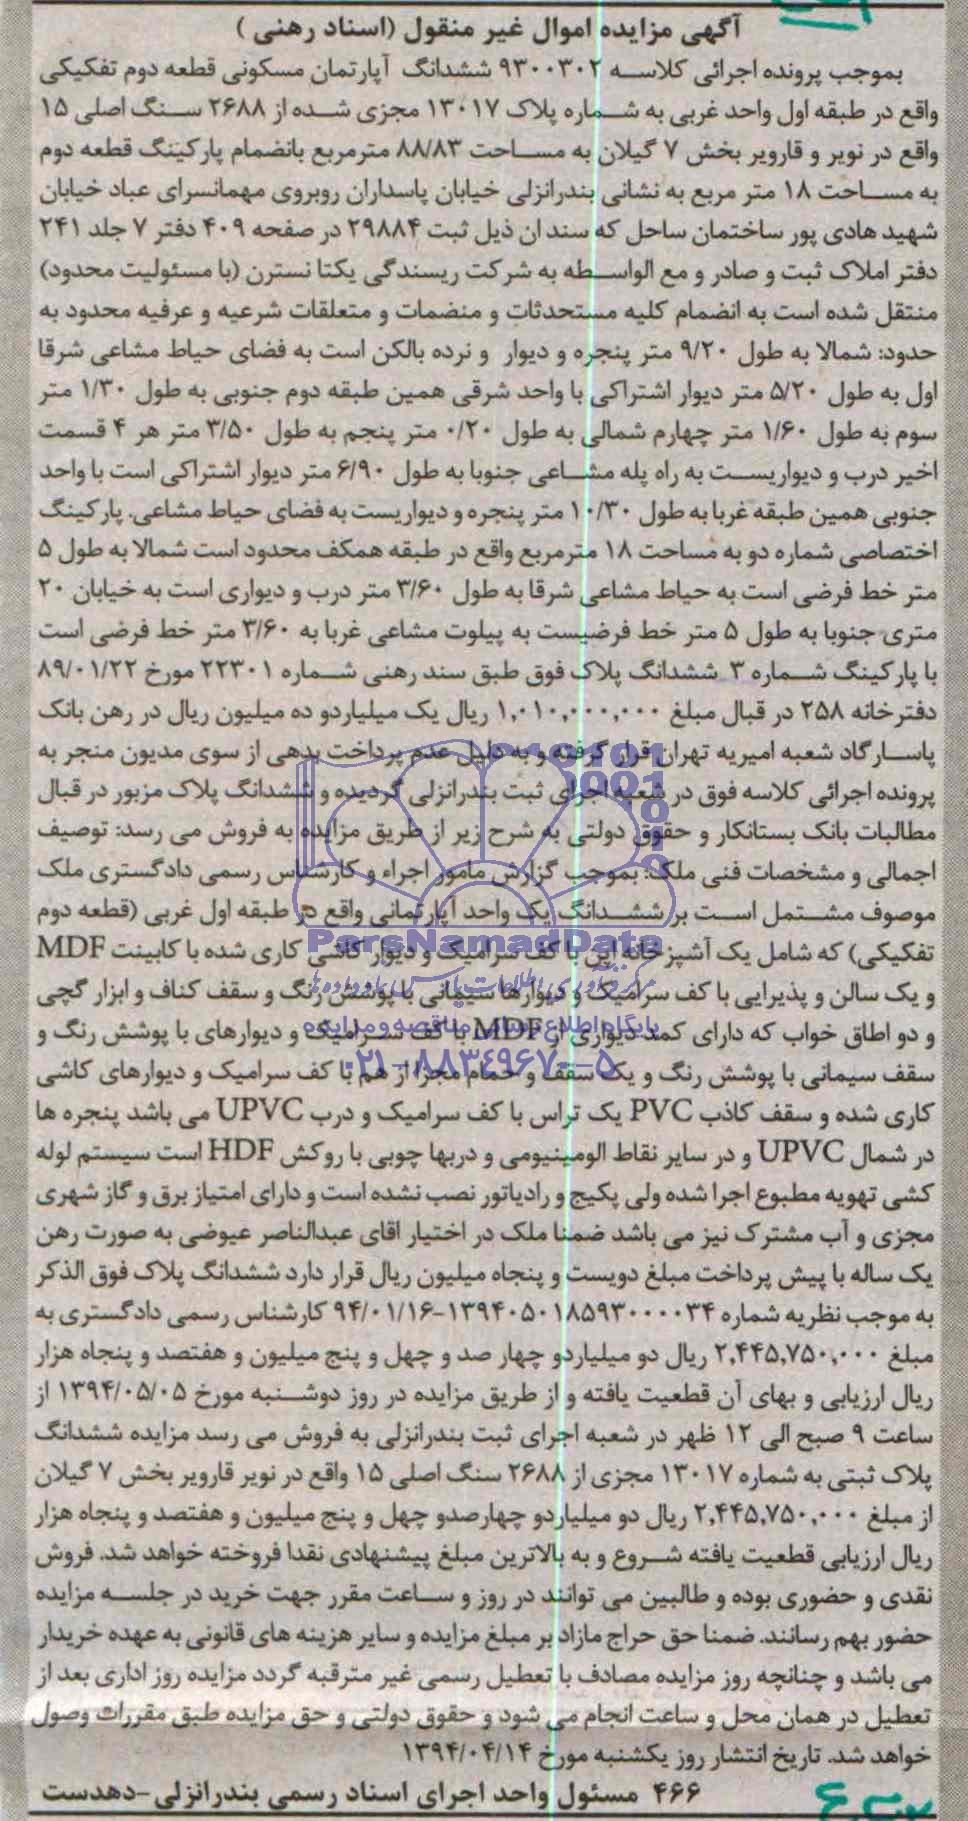 آگهی مزایده اموال غیر منقول (اسناد رهنی )
بموجب پرونده اجرائی کلاسه ۹۳۰۰۳۰۲ ششدانگ آپارتمان مسکونی قطعه دوم تفکیکی
واقع در طبقه اول واحد غربی به شماره پلاک ۱۳۰۱۷ مجزی شده از ۲۶۸۸ سنگ اصلی ۱۵
واقع در نویر و قارویر بخش ۷ گیلان به مساحت ۸۸/۸۳ مترمربع بانضمام پارکینگ قطعه دوم
به مساحت ۱۸ متر مربع به نشانی بندرانزلی خیابان پاسداران روبروی مهمانسرای عباد خیابان
شهید هادی پور ساختمان ساحل که سند ان ذیل ثبت ۲۹۸۸۴ در صفحه ۴۰۹ دفتر ۷ جلد ۲۴۱
دفتر املاک ثبت و صادر و مع الواسطه به شرکت ریسندگی یکتا نسترن (با مسئولیت محدود)
منتقل شده است به انضمام کلیه مستحدثات و منضمات و متعلقات شرعیه و عرفیه محدود به
حدود: شمالا به طول ۹/۲۰ متر پنجره و دیوار و نرده بالکن است به فضای حیاط مشاعی شرقا
اول به طول ۵/۲۰ متر دیوار اشتراکی با واحد شرقی همین طبقه دوم جنوبی به طول ۱/۳۰ متر
سوم به طول ۱/۶۰ متر چهارم شمالی به طول ۰/۲۰ متر پنجم به طول ۳/۵۰ متر هر ۴ قسمت
اخیر درب و دیواریست به راه پله مشاعی جنوبا به طول ۶/۹۰ متر دیوار اشتراکی است با واحد
جنوبی همین طبقه غربا به طول ۱۰/۳۰ متر پنجره و دیواریست به فضای حیاط مشاعی. پارکینگ
اختصاصی شماره دو به مساحت ۱۸ مترمربع واقع در طبقه همکف محدود است شمالا به طول ۵
متر خط فرضی است به حیاط مشاعی شرقا به طول ۳/۶۰ متر درب و دیواری است به خیابان ۲۰
متری جنوبا به طول ۵ متر خط فرضیست به پیلوت مشاعی غربا به ۳/۶۰ متر خط فرضی است
با پارکینگ شماره ۳ ششدانگ پلاک فوق طبق سند رهنی شماره ۲۲۳۰۱ مورخ ۸۹/۰۱/۲۲
دفترخانه ۲۵۸ در قبال مبلغ ۱,۰۱۰,۰۰۰,۰۰۰ ریال یک میلیاردو ده میلیون ریال در رهن بانک
پاسارگاد شعبه امیریه تهران قرار گرفته و به دلیل عدم پرداخت بدهی از سوی مدیون منجر به
پرونده اجرائی کلاسه فوق در شعبه اجرای ثبت بندرانزلی گردیده و ششدانگ پلاک مزبور در قبال
مطالبات بانک بستانکار و حقوق دولتی به شرح زیر از طریق مزایده به فروش می رسد: توصیف
اجمالی و مشخصات فنی ملک: بموجب گزارش مامور اجراء و کارشناس رسمی دادگستری ملک
موصوف مشتمل است بر ششدانگ یک واحد آپارتمانی واقع در طبقه اول غربی (قطعه دوم
ParsNamadData
تفکیکی) که شامل یک آشپزخانه اپن با کف سرامیک و دیوار کاشی کاری شده با کابینت MDF
و یک سالن و پذیرایی با کف سرامیک و دیوارها سیمانی با پوشش رنگ و سقف کناف و ابزار گچی
پایگاه اطلاع رسانی مناقصه و مزایده
و دو اطاق خواب که دارای کمد دیواری از MDF با کف سرامیک و دیوارهای با پوشش رنگ و
۰۲۱-۸۸۳۴۹۶۷۰-۵
سقف سیمانی با پوشش رنگ و یک سقف و حمام مجزا از هم با کف سرامیک و دیوارهای کاشی
کاری شده و سقف کاذب PVC یک تراس با کف سرامیک و درب UPVC می باشد پنجره ها
در شمال UPVC و در سایر نقاط الومینیومی و دربها چوبی با روکش HDF است سیستم لوله
کشی تهویه مطبوع اجرا شده ولی پکیج و رادیاتور نصب نشده است و دارای امتیاز برق و گاز شهری
مجزی و آب مشترک نیز می باشد ضمنا ملک در اختیار اقای عبدالناصر عیوضی به صورت رهن
یک ساله با پیش پرداخت مبلغ دویست و پنجاه میلیون ریال قرار دارد ششدانگ پلاک فوق الذکر
به موجب نظریه شماره ۱۳۹۴۰۵۰۱۸۵۹۳۰۰۰۰۳۴-۹۴/۰۱/۱۶ کارشناس رسمی دادگستری به
مبلغ ۲,۴۴۵,۷۵۰,۰۰۰ ریال دو میلیاردو چهار صد و چهل و پنج میلیون و هفتصد و پنجاه هزار
ریال ارزیابی و بهای آن قطعیت یافته و از طریق مزایده در روز دوشنبه مورخ ۱۳۹۴/۰۵/۰۵ از
ساعت ۹ صبح الی ۱۲ ظهر در شعبه اجرای ثبت بندرانزلی به فروش می رسد مزایده ششدانگ
پلاک ثبتی به شماره ۱۳۰۱۷ مجزی از ۲۶۸۸ سنگ اصلی ۱۵ واقع در نویر قارویر بخش ۷ گیلان
از مبلغ ۲,۴۴۵,۷۵۰,۰۰۰ ریال دو میلیاردو چهارصدو چهل و پنج میلیون و هفتصد و پنجاه هزار
ریال ارزیابی قطعیت یافته شروع و به بالاترین مبلغ پیشنهادی نقدا فروخته خواهد شد. فروش
نقدی و حضوری بوده و طالبین می توانند در روز و ساعت مقرر جهت خرید در جلسه مزایده
حضور بهم رسانند. ضمنا حق حراج مازاد بر مبلغ مزایده و سایر هزینه های قانونی به عهده خریدار
می باشد و چنانچه روز مزایده مصادف با تعطیل رسمی غیر مترقبه گردد مزایده روز اداری بعد از
تعطیل در همان محل و ساعت انجام می شود و حقوق دولتی و حق مزایده طبق مقررات وصول
خواهد شد. تاریخ انتشار روز یکشنبه مورخ ۱۳۹۴/۰۴/۱۴
۴۶۶ مسئول واحد اجرای اسناد رسمی بندرانزلی-دهدست